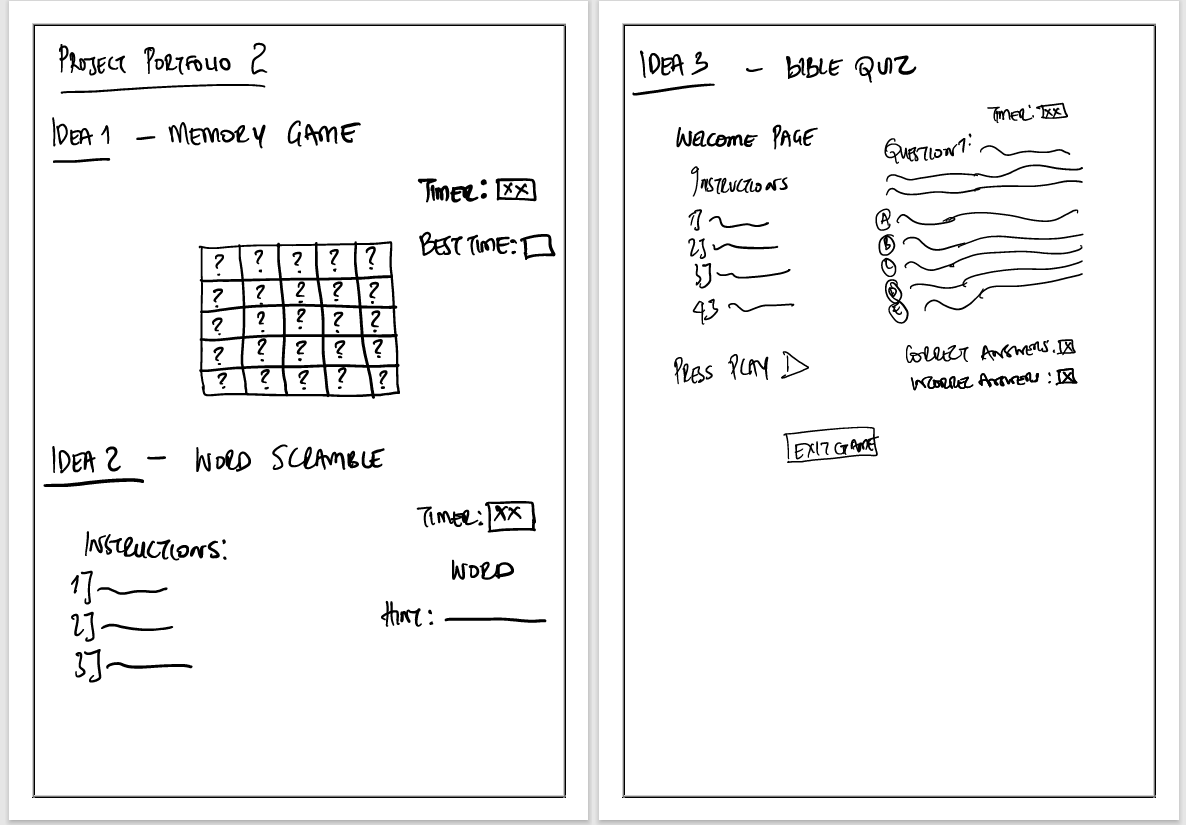 PROJECT PORTFOLIO 2
IDEA 1 — MEMORY GAME
TIMER: XX
BEST TIME:
? ? ? ? ?
? ? ? ? ?
? ? ? ? ?
? ? ? ? ?
? ? ? ? ?
IDEA 2 — WORD SCRAMBLE
TIMER: XX
INSTRUCTIONS:
WORD
1]
HINT:
2]
3]
IDEA 3 — BIBLE QUIZ
TIMER: XX
WELCOME PAGE
QUESTION 1:
INSTRUCTIONS
1]
2]
3]
4]
A
B
C
D
E
PRESS PLAY
CORRECT ANSWERS: X
INCORREC ANSWERS: X
EXIT GAME